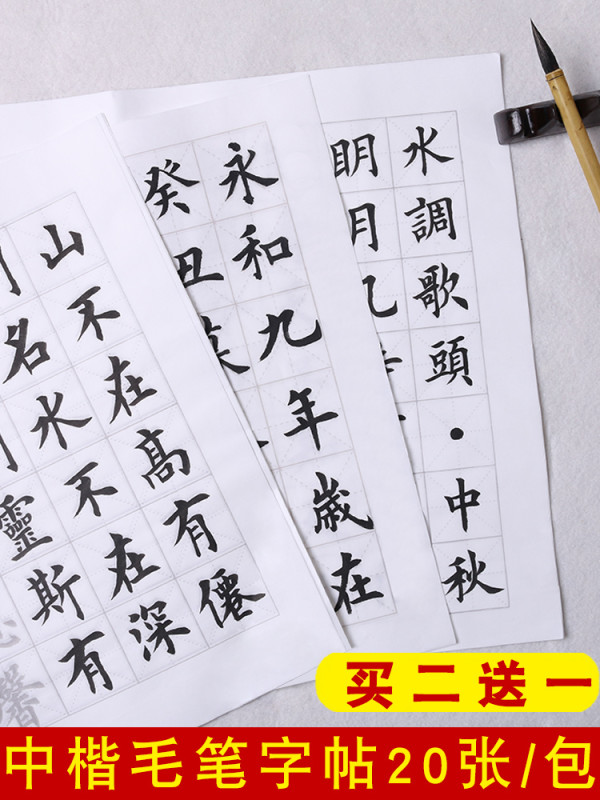 水調歌頭·中秋
明月几
永和九年歲在
癸丑
山不在高有僊
名水不在深
靈斯有
馨
买二送一
中楷毛笔字帖20张/包